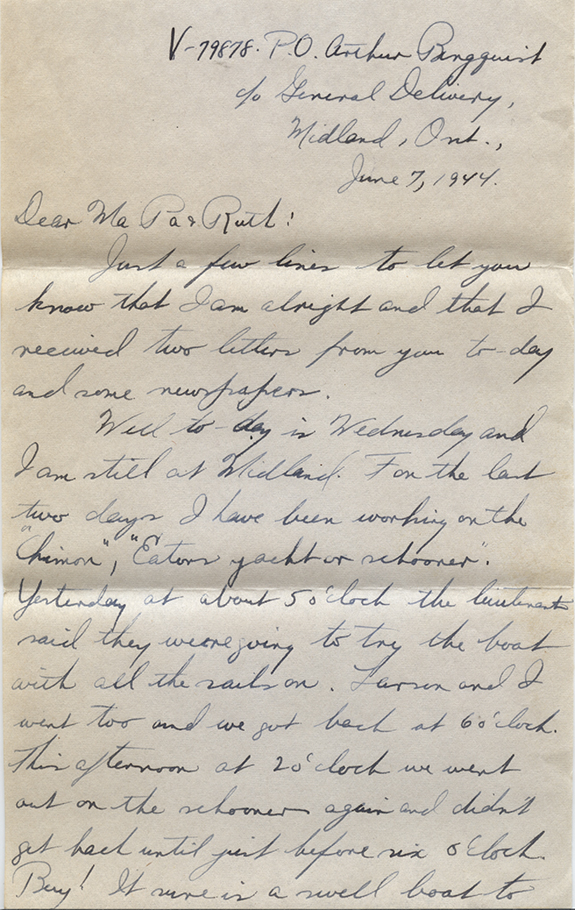 V-79878. P.O. Arthur Bergquist
c/o General Delivery,
Midland, Ont.,
June 7, 1944.
Dear Ma Pa & Ruth!
Just a few lines to let you
know that I am alright and that I
received two letters from you to-day
and some newspapers.
Well to-day is Wednesday and
I am still at Midland. For the last
two days I have been working on the
"Chimon", "Eatons yacht or schooner".
Yesterday at about 5 o'clock the lieutenant
said they were going to try the boat
with all the sails on. Larson and I
went too and we got back at 6 o'clock.
This afternoon at 2 o'clock we went
out on the schooner again and didn't
get back until just before six o'clock.
Boy! It sure is a swell boat to